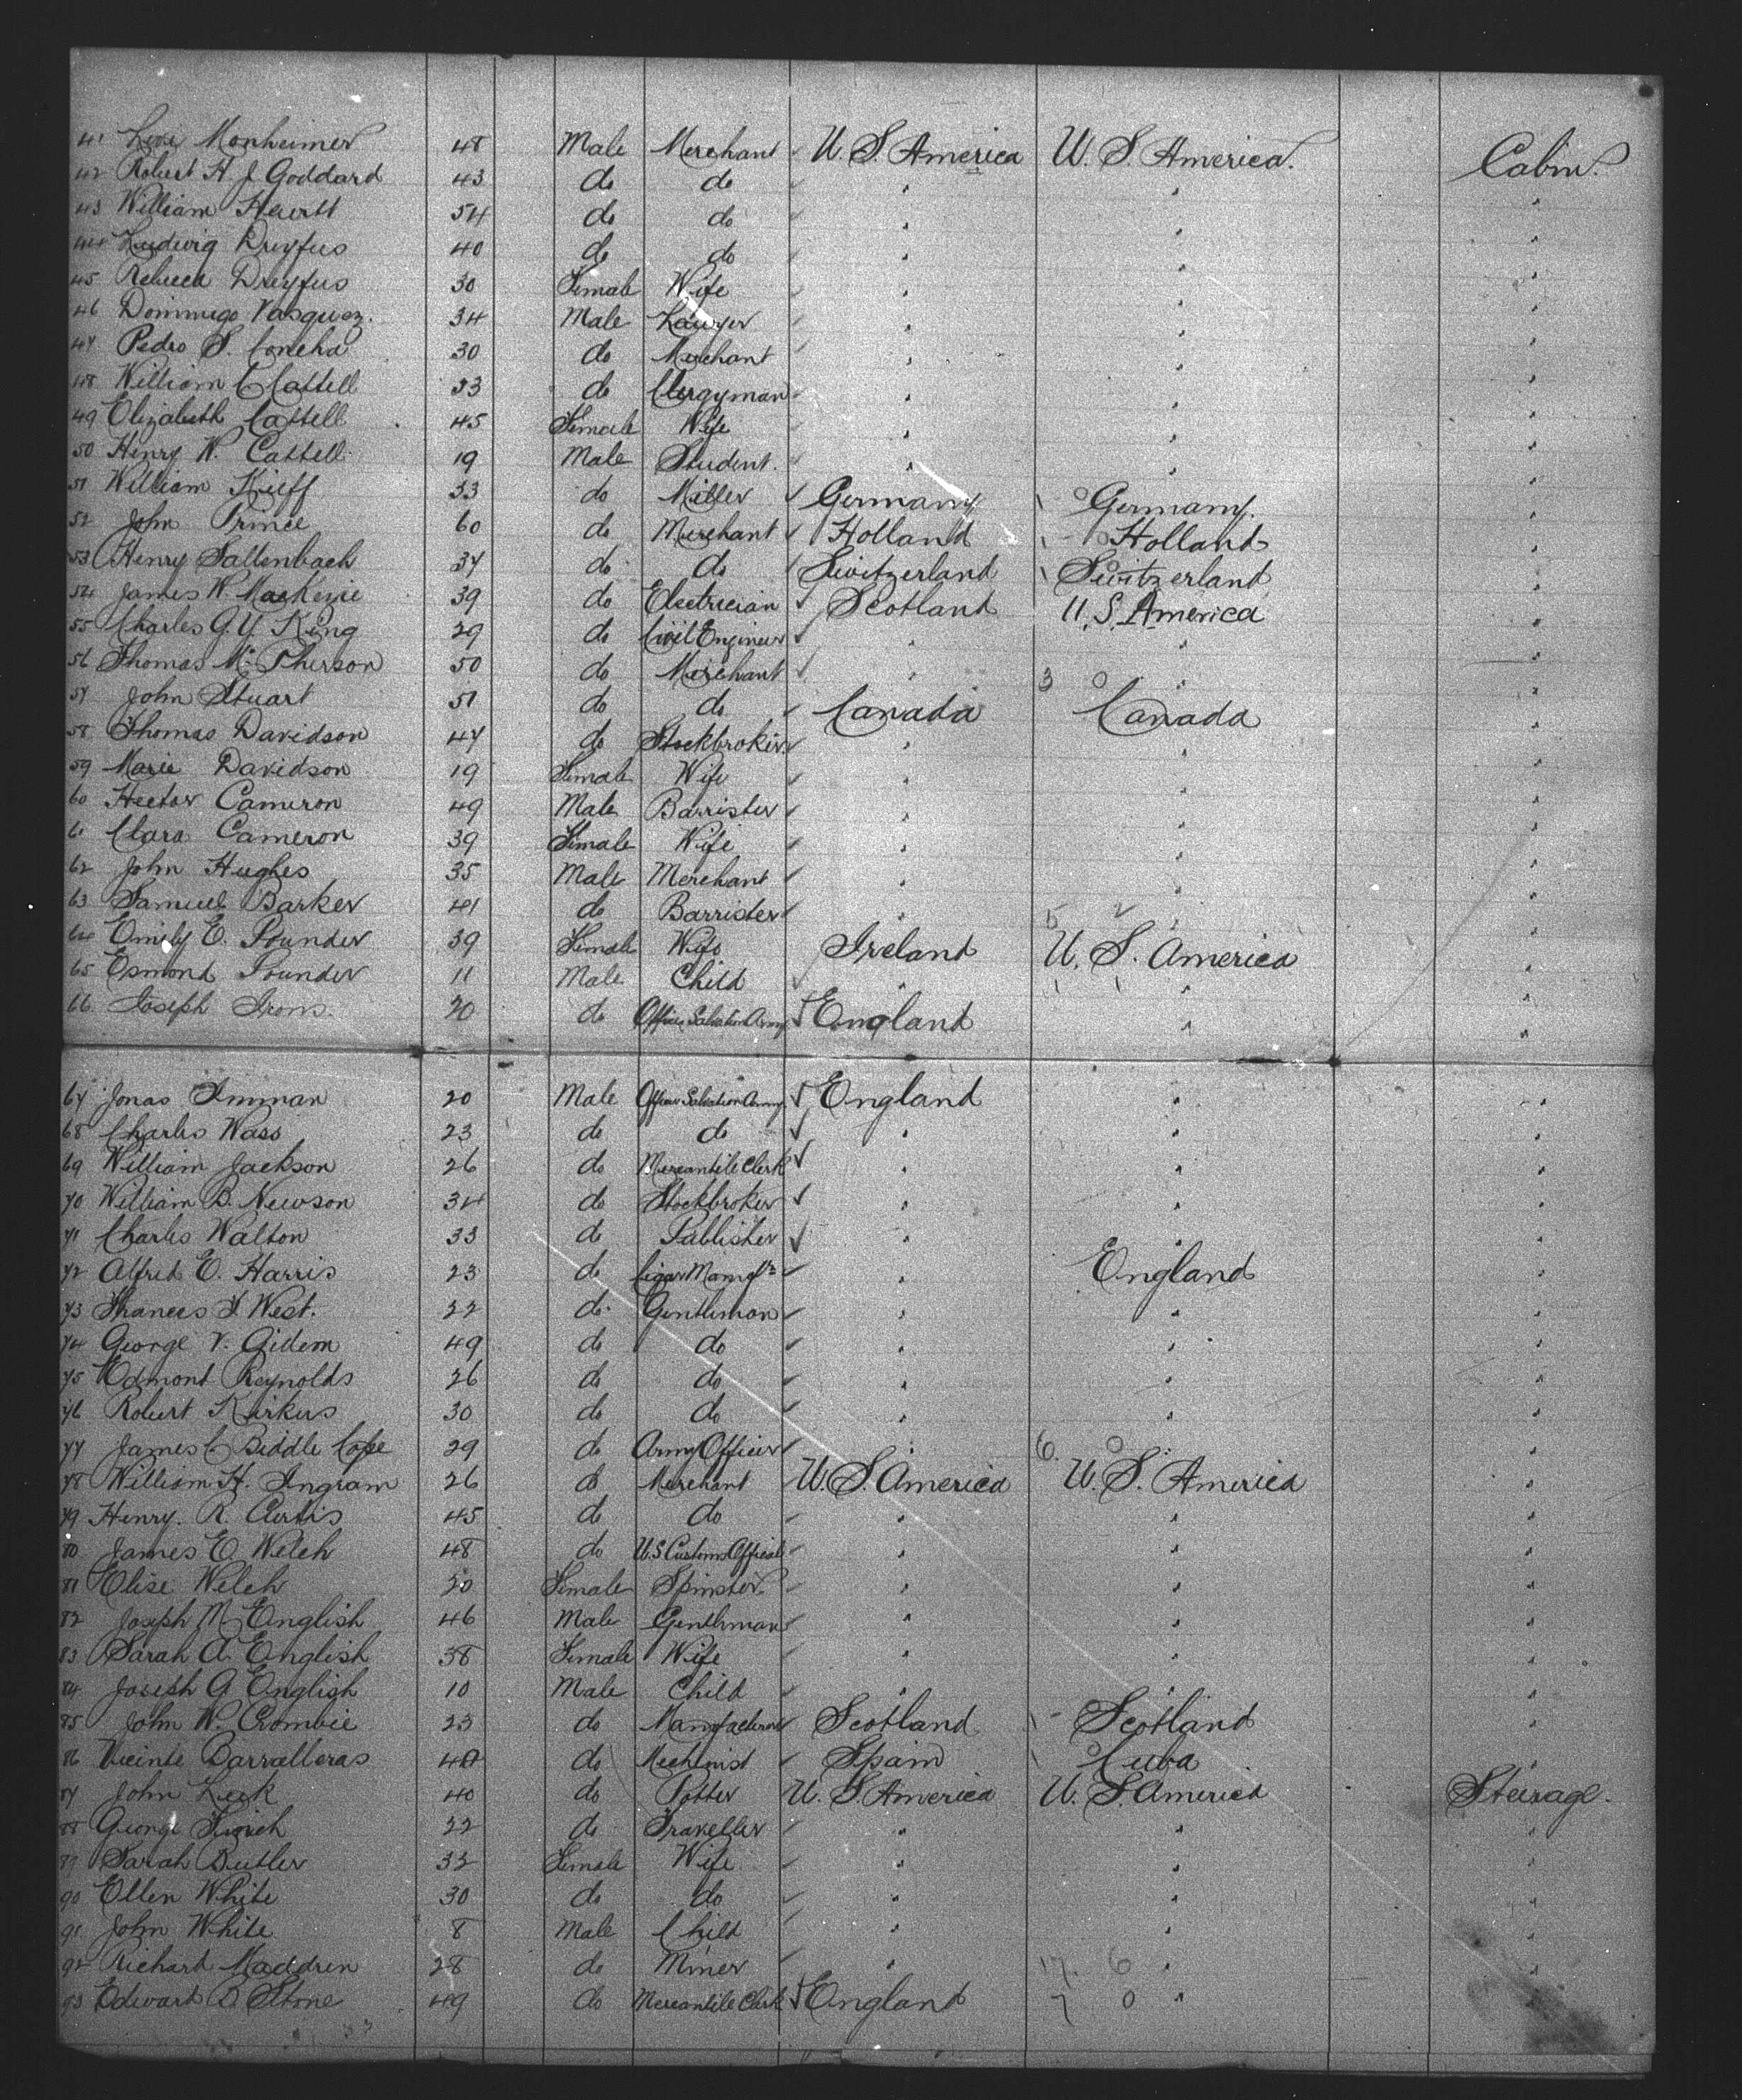 41 Monheimer 48 Male Merchant U. S. America U. S. America. Cabin.
42 Robert H. J. Goddard 43 do do " " "
43 William Hewitt 54 do do " " "
44 Ludwig Dreyfus 40 do do " " "
45 Rebecca Dreyfus 30 Female Wife " " "
46 Domingo Vasquez. 34 Male Lawyer " " "
47 Pedro S. Concha 30 do Merchant " " "
48 William C Cattell 53 do Clergyman " " "
49 Elizabeth Cattell 45 Female Wife " " "
50 Henry W. Cattell 19 Male Student. " " "
51 William Kieff 33 do Miller Germany Germany. "
52 John Prince 60 do Merchant Holland Holland "
53 Henry Saltenbach 34 do do Switzerland Switzerland "
54 James W. MacKenzie 39 do Electrician Scotland U. S. America "
55 Charles G. Y. King 29 do Civil Engineer " " "
56 Thomas McPherson 50 do Merchant " " "
57 John Stuart 51 do do Canada Canada "
58 Thomas Davidson 47 do Stockbroker " " "
59 Marie Davidson 19 Female Wife " " "
60 Hector Cameron 49 Male Barrister " " "
61 Clara Cameron 39 Female Wife " " "
62 John Hughes 35 Male Merchant " " "
63 Samuel Barker 41 do Barrister " " "
64 Emily E. Pounder 39 Female Wife Ireland U. S. America "
65 Esmond Pounder 11 Male Child " " "
66 Joseph Irons. 20 do Officer Salvation Army England " "
67 Jonas Inman 20 Male Officer Salvation Army England " "
68 Charles Wass 23 do do " " "
69 William Jackson 26 do Mercantile Clerk " " "
70 William B. Newson 34 do Stockbroker " " "
71 Charles Walton 33 do Publisher " " "
72 Alfred E. Harris 23 do Cigar Manufr " England "
73 Frances F West. 22 do Gentleman " " "
74 George V. Gidem 49 do do " " "
75 Edmont Reynolds 26 do do " " "
76 Robert Kirkus 30 do do " " "
77 James C Biddle Cope 29 do Army Officer " " "
78 William H. Ingram 26 do Merchant U. S. America U. S. America "
79 Henry. R. Curtis 45 do do " " "
80 James E. Welch 48 do U.S Customs Official " " "
81 Elise Welch 20 Female Spinster " " "
82 Joseph M English 46 Male Gentleman " " "
83 Sarah A. English 38 Female Wife " " "
84 Joseph G English 10 Male Child " " "
85 John W. Crombie 23 do Manufacturer Scotland Scotland "
86 Vicente Barralleras 40 do Machinist Spain Cuba "
87 John Leek 40 do Potter U. S. America U. S. America Steerage.
88 George 22 do Traveller " " "
89 Sarah Butler 32 Female Wife " " "
90 Ellen White 30 do do " " "
91 John White 8 Male Child " " "
92 Richard Maddren 28 do Miner " " "
93 Edward B Stone 49 do Mercantile Clerk England "